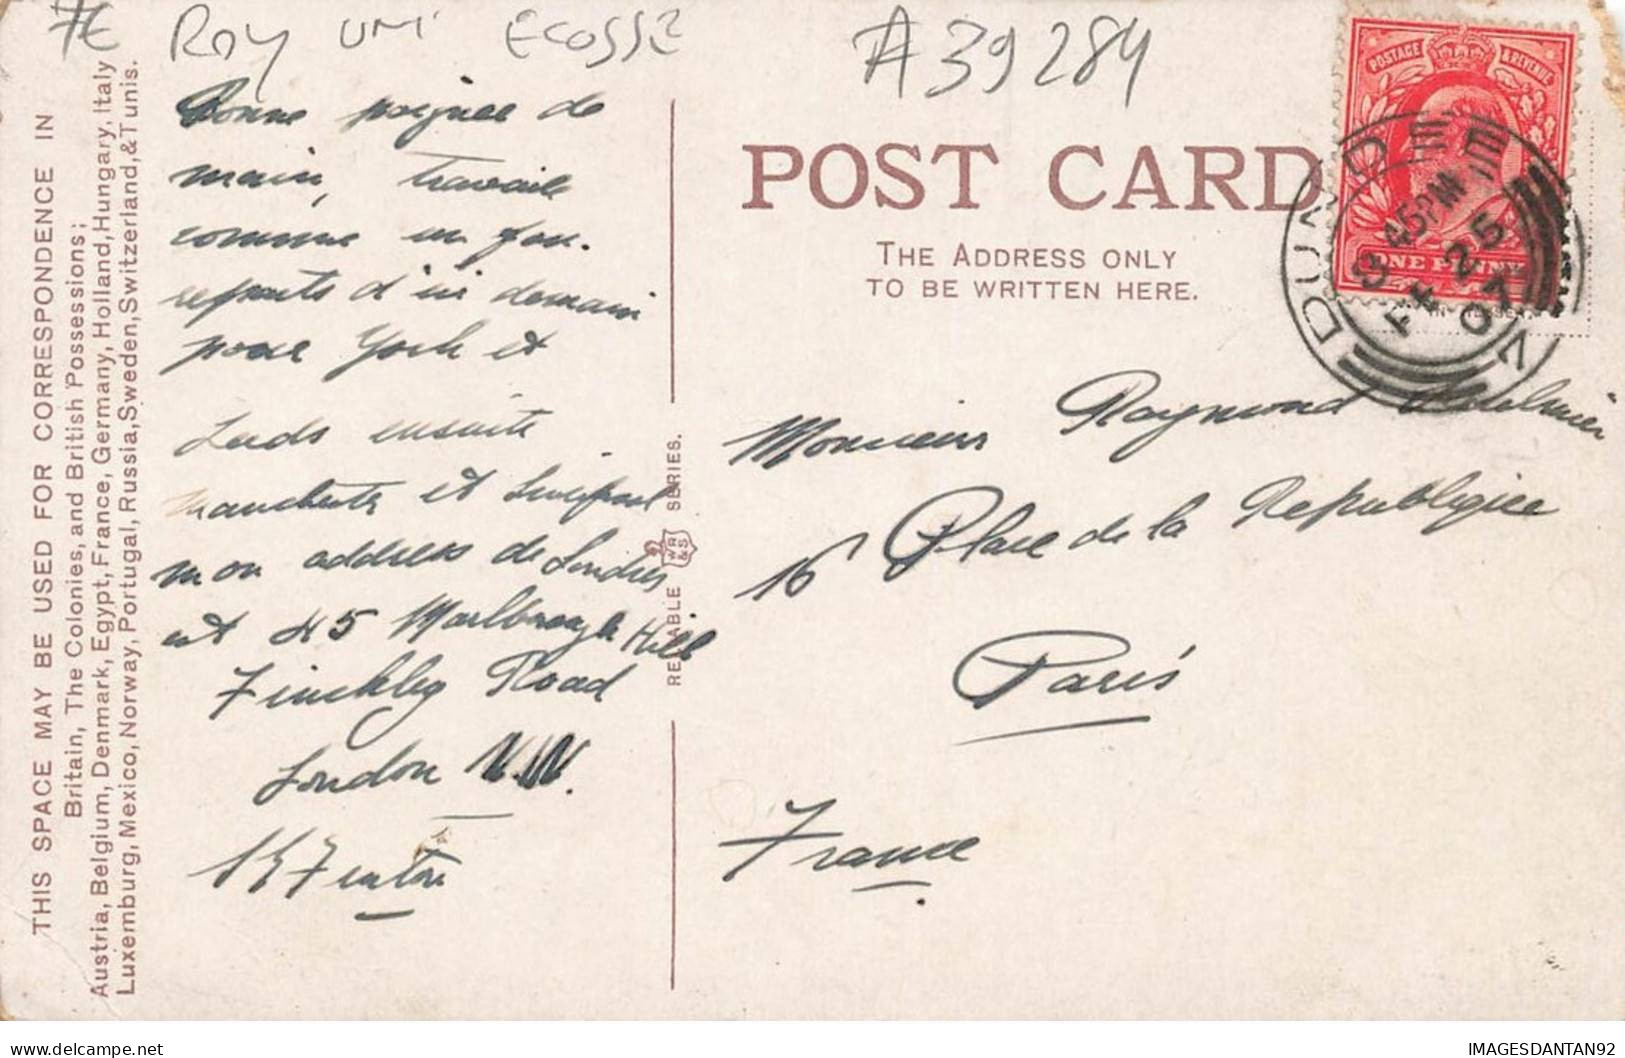 7€ ROY UNI ECOSSE
A39284
THIS SPACE MAY BE USED FOR CORRESPONDENCE IN
Britain, The Colonies, and British Possessions;
Austria, Belgium, Denmark, Egypt, France, Germany, Holland, Hungary, Italy
Luxemburg, Mexico, Norway, Portugal, Russia, Sweden, Switzerland, & Tunis.
Bonne poignee de
main, travail
comme
reparts d'ici demain
pour York et
Leeds ensuite
Manchester et Liverpool
mon address de Londres
est 45 Marlborough Hill
Finchley Road
London N.W.
Fenton
RELIABLE WR&S SERIES.
POST CARD
THE ADDRESS ONLY
TO BE WRITTEN HERE.
POSTAGE & REVENUE
ONE PENNY
DUNDEE
45PM
FE 25
07
Monsieur Raymond
16 Place de la Republique
Paris
France
IMAGESDANTAN92